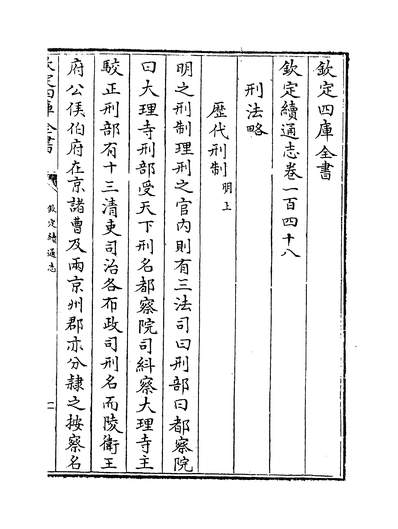 欽定四庫全書
欽定續通志卷一百四十八
刑法略
歷代刑制明上
明之刑制理刑之官內則有三法司曰刑部曰都察院
曰大理寺刑部受天下刑名都察院司糾察大理寺主
駮正刑部有十三清吏司治各布政司刑名而陵衛王
府公侯伯府在京諸曹及兩京州郡亦分隸之按察名
欽定四庫全書
欽定續通志
一